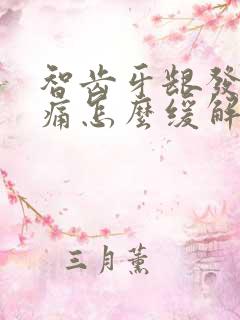 智齿牙龈發
痛怎麽缓解
三月薰